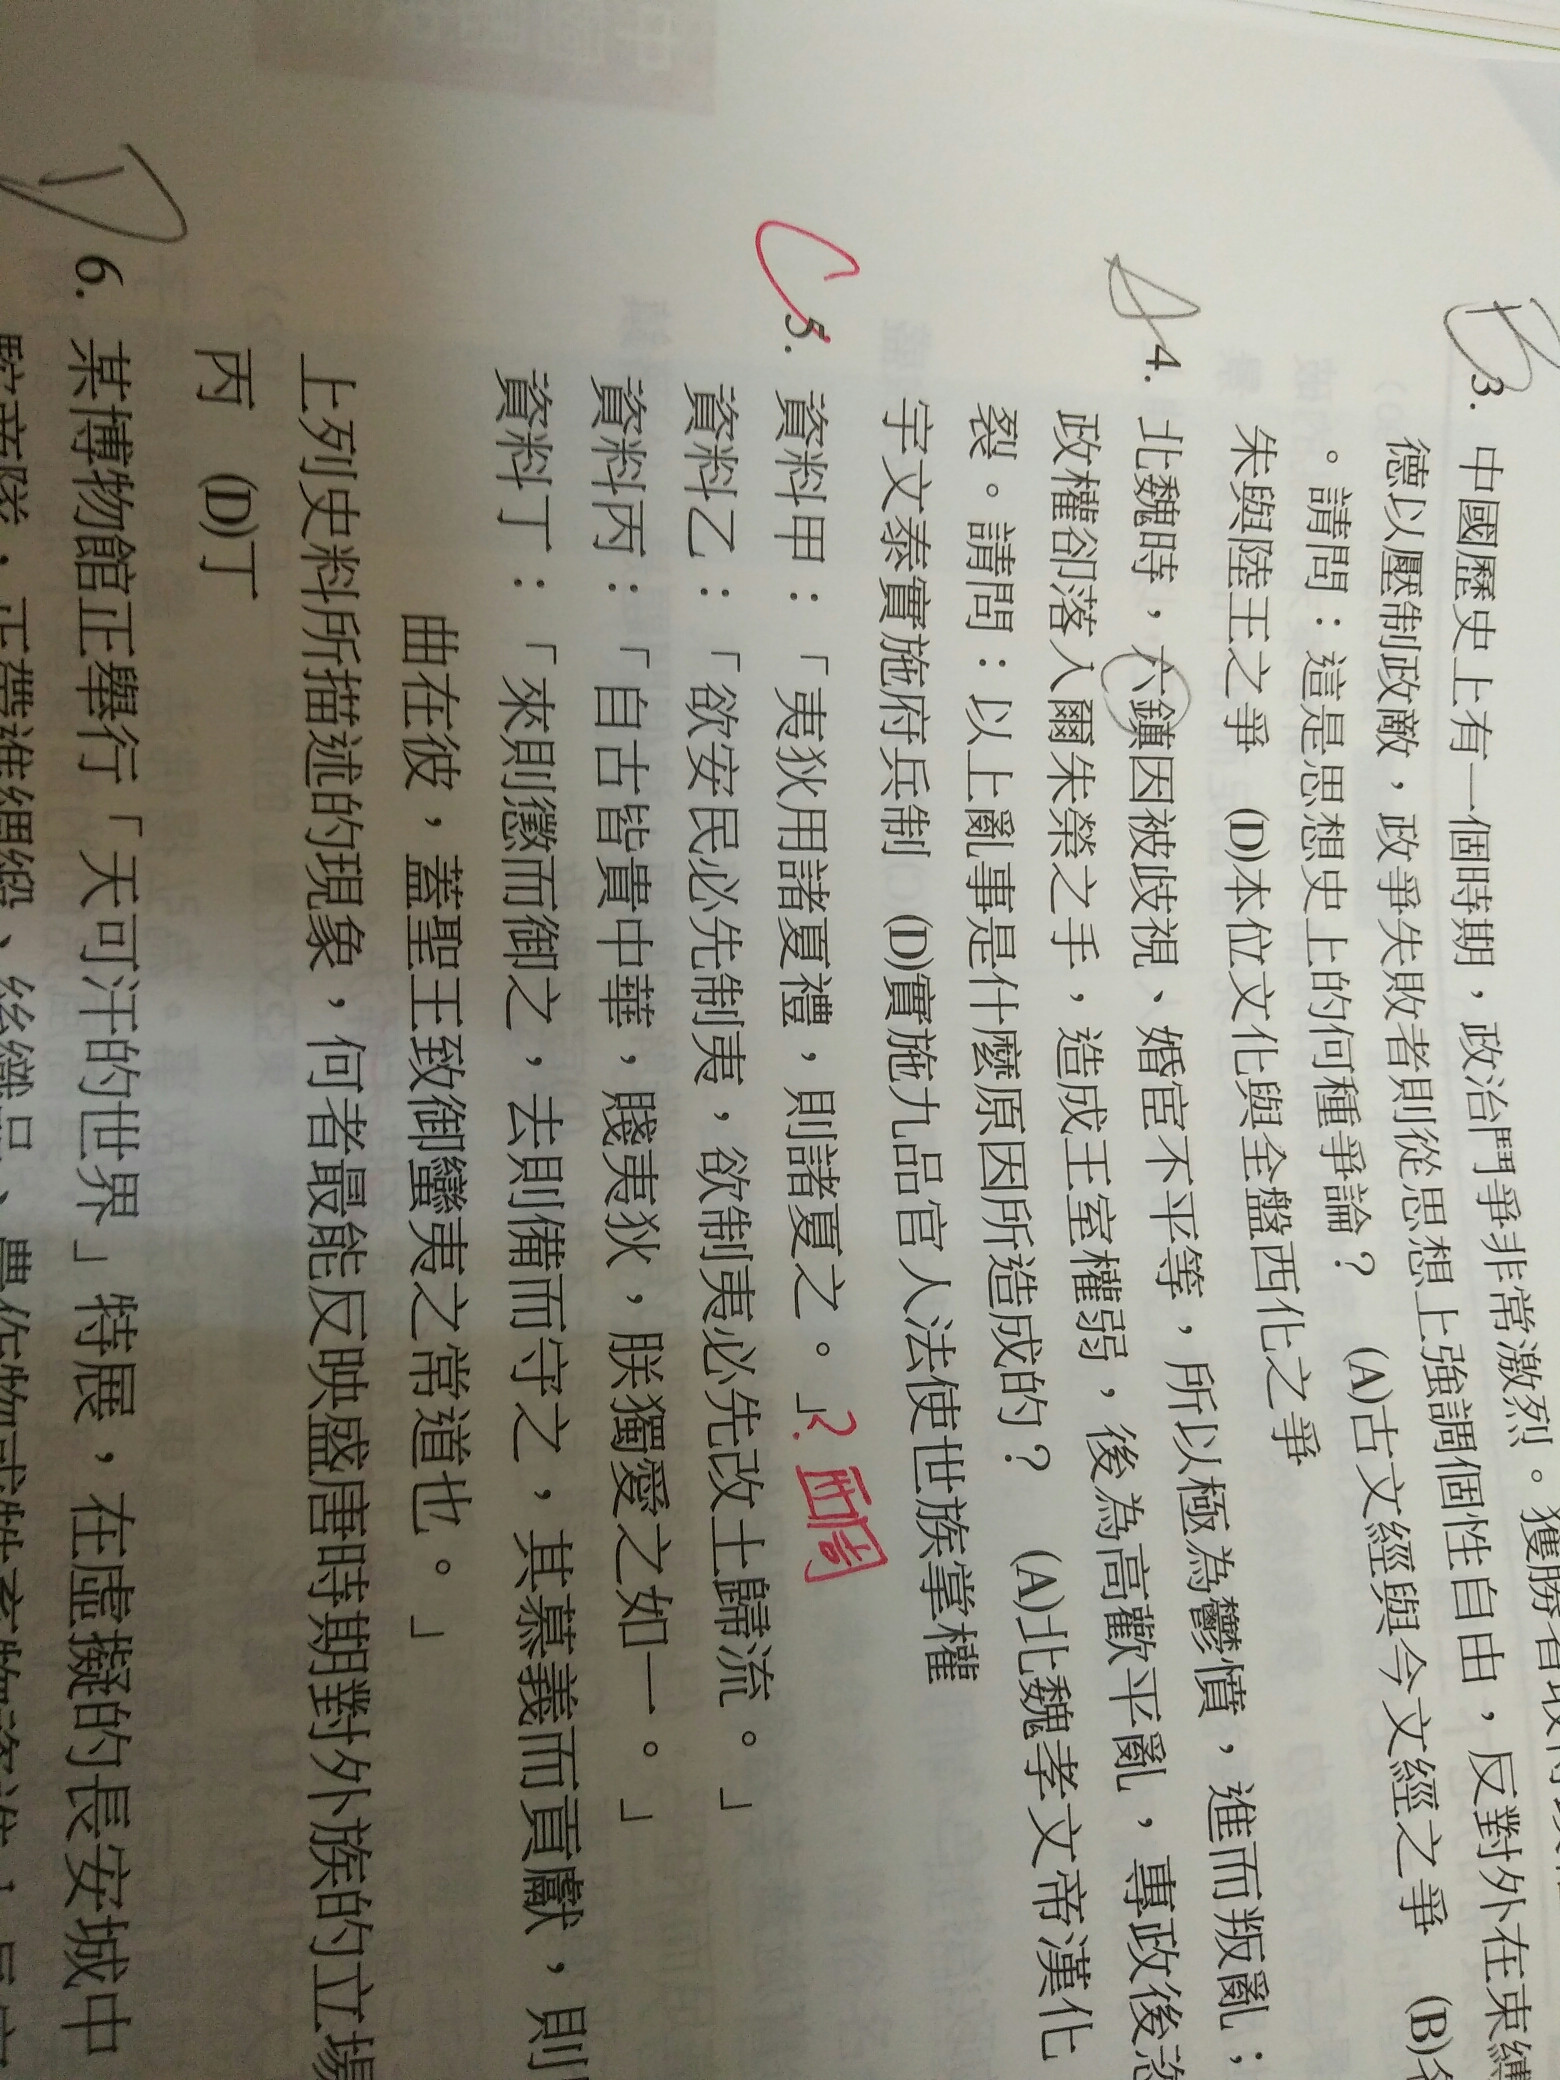 B 3. 中國歷史上有一個時期，政治鬥爭非常激烈。獲勝者
德以壓制政敵，政爭失敗者則從思想上強調個性自由，反對外在束縛
。請問：這是思想史上的何種爭論？ (A)古文經與今文經之爭 (B)
朱與陸王之爭 (D)本位文化與全盤西化之爭
A 4. 北魏時，六鎮因被歧視、婚宦不平等，所以極為鬱憤，進而叛亂；
政權卻落入爾朱榮之手，造成王室權弱，後為高歡平亂，專政後
裂。請問：以上亂事是什麼原因所造成的？ (A)北魏孝文帝漢化
宇文泰實施府兵制 (D)實施九品官人法使世族掌權
C 5. 資料甲：「夷狄用諸夏禮，則諸夏之。」？西周
資料乙：「欲安民必先制夷，欲制夷必先改土歸流。」
資料丙：「自古皆貴中華，賤夷狄，朕獨愛之如一。」
資料丁：「來則懲而御之，去則備而守之，其慕義而貢獻，則
曲在彼，蓋聖王致御蠻夷之常道也。」
上列史料所描述的現象，何者最能反映盛唐時期對外族的立場
丙 (D)丁
D 6. 某博物館正舉行「天可汗的世界」特展，在虛擬的長安城中